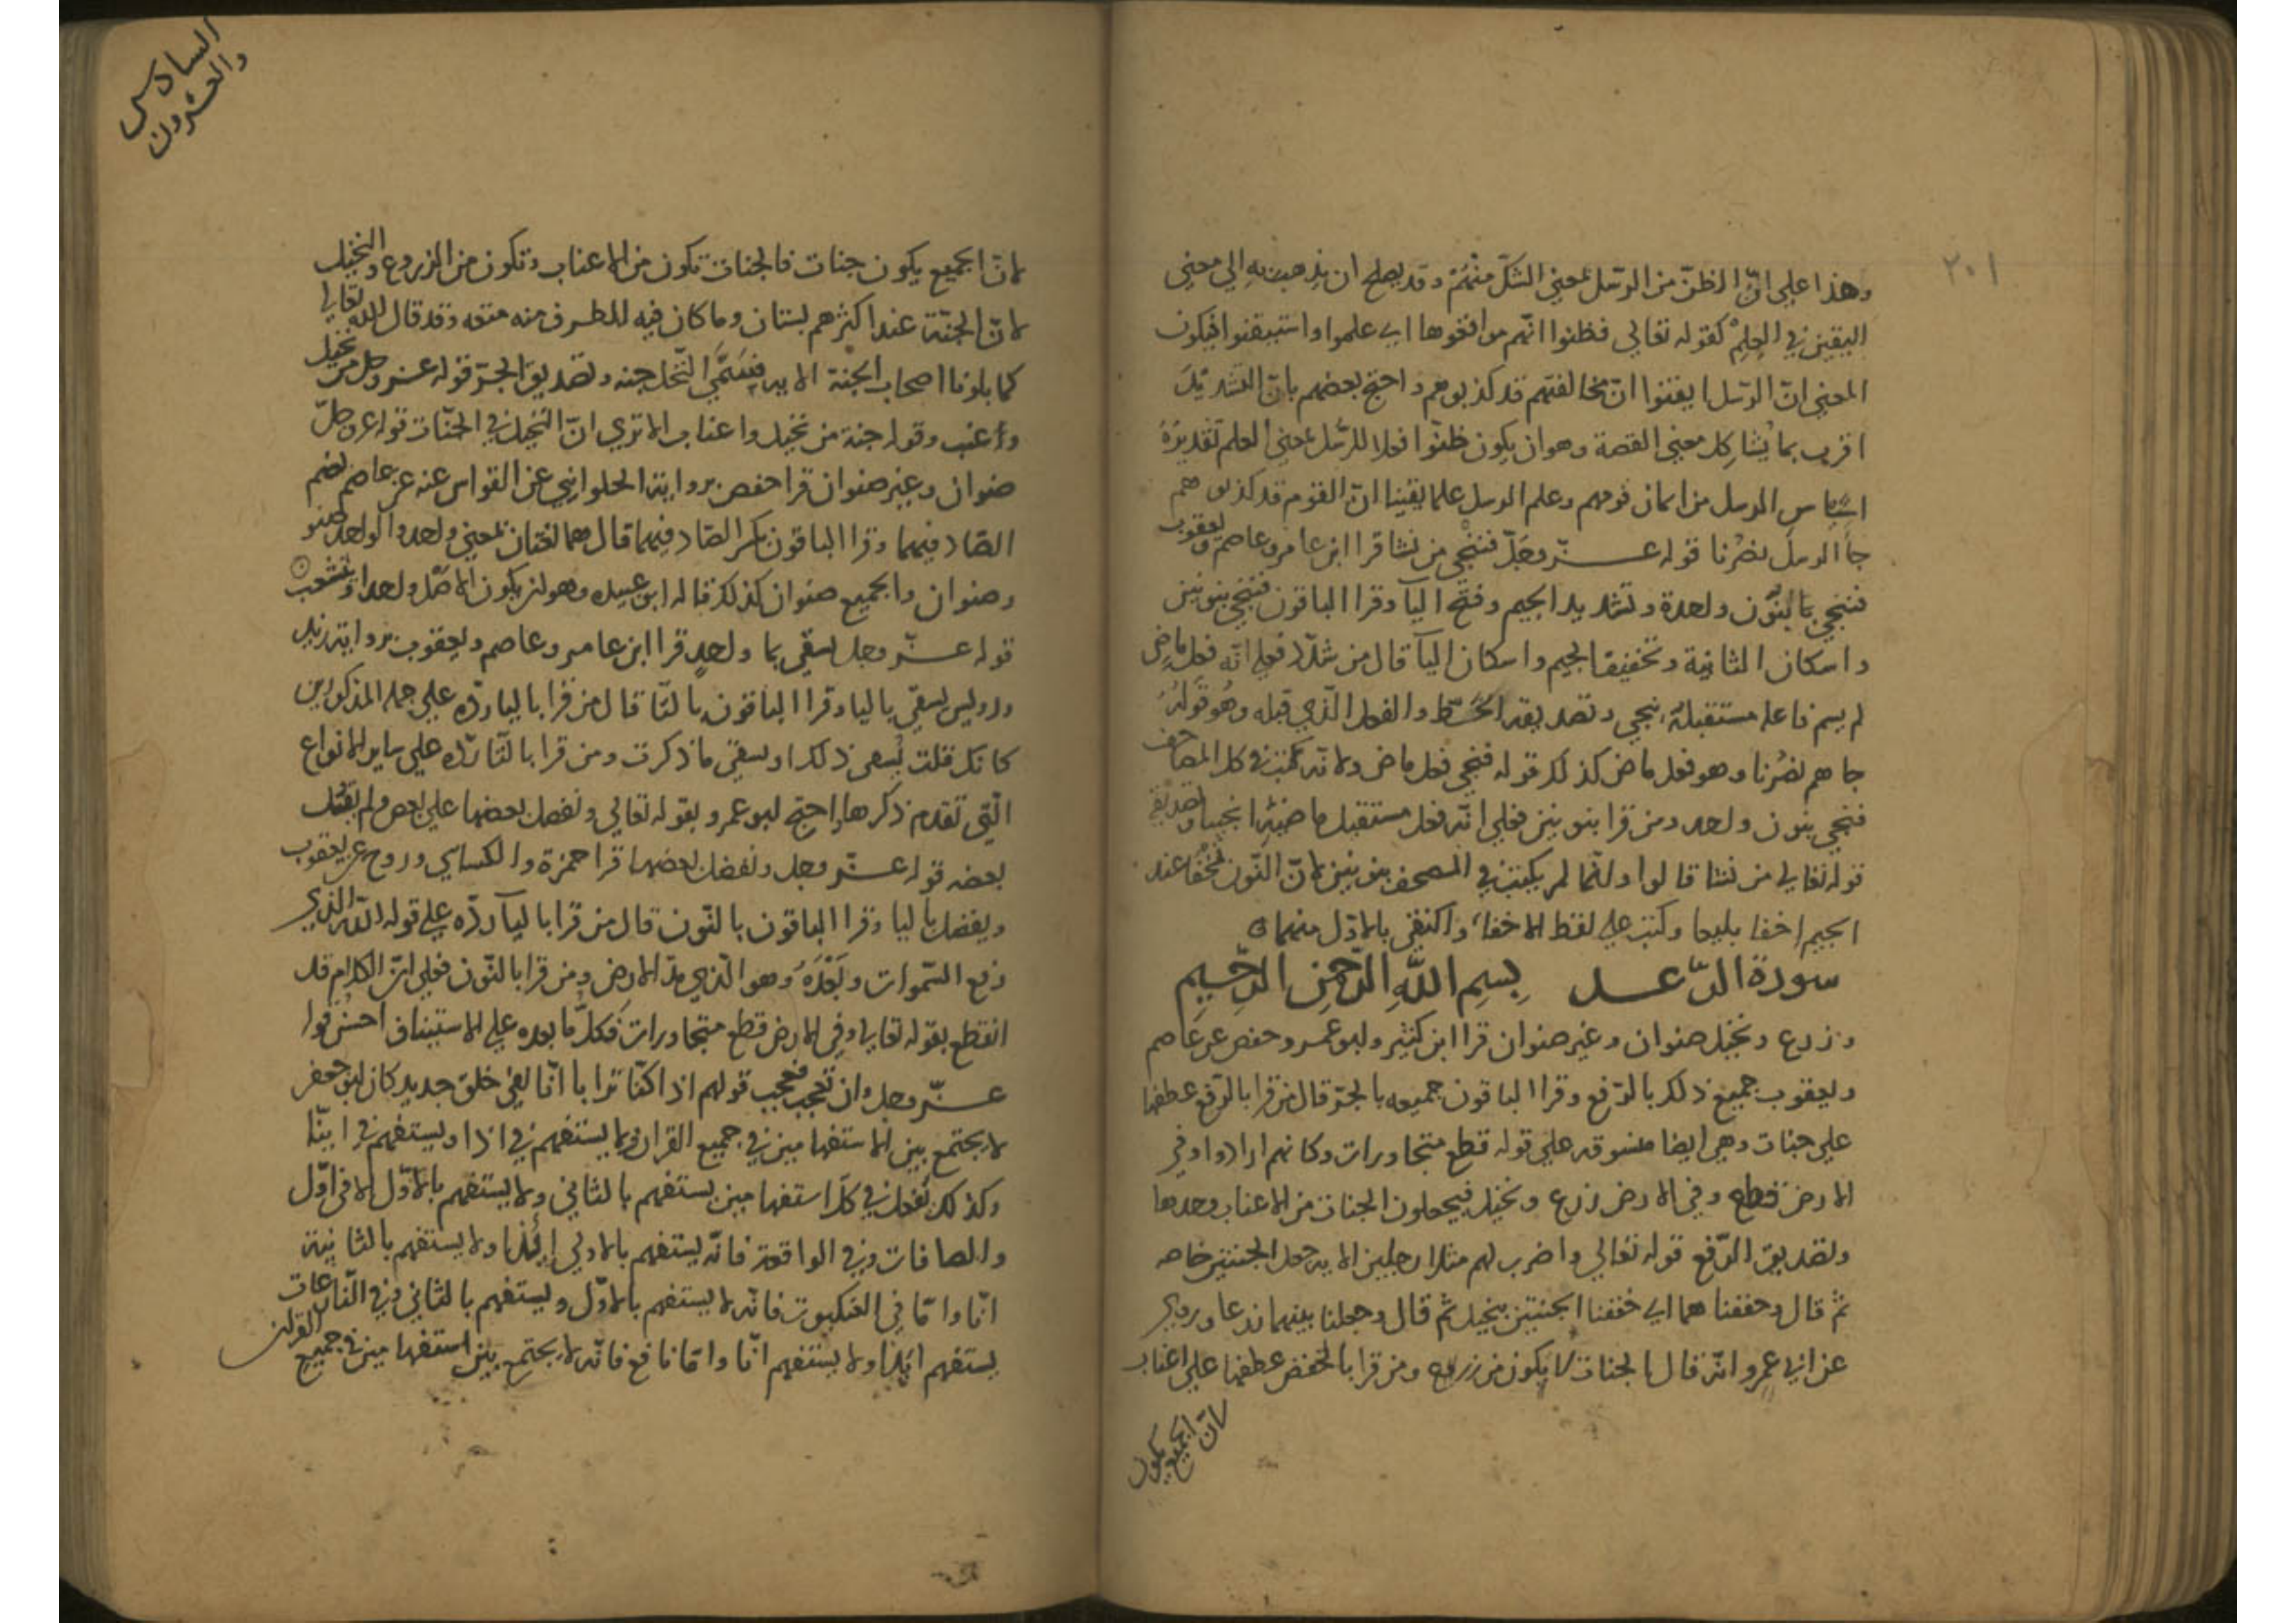 ٢٠١
وهذا علي انّ الظنّ من الرسل بمعني الشكّ منهُمْ وقد يصلح ان يذهب به الي معني
اليقين في العِلمْ كقوله تعالي فظنوا انّهم مواقعوها اي علموا واستيقنوا فيكون
المعني انّ الرّسل ايقنوا انّ مخالفتهم قد كذبوهم واحتج بعضهم بانّ التشديدَ
اقرب بما يُشاكل معني القصة وهو ان يكون ظنّوا فعلا للرسُل بمعني العلم تقديرُهُ
استياس الرسل من ايمان قومهم وعلم الرسل علما يقينا انّ القوم قد كذبوهم
جاَ الرسلَ نصْرُنا قوله عزّ وجَلّ فننجي من نشا قرا ابن عامر وعاصم ويعقوب
فننجي بالنّون واحدة وتشديد الجيم وفتح اليآ وقرا الباقون فننجي بنونين
واسكان الثانية وتخفيف الجيم واسكان اليآ قال من شدّد فعلي انّه فعل ماضٍ
لم يسم فاعله مستقبلهُ ينجي وتصديقه الخَطّ والفعل الّذي قبله وهُو قولُهُ
جاهم نصْرُنا وهو فعل ماض كذلك قوله فنجي فعل ماض ولانّه كتب في كل المصاحف
فنجي بنون واحد ومن قرا بنونين فعلي انّه فعل مستقبل ماضيهِ انجينا وتصديقه
قوله تعالي من نشا قالوا وانّما لم يكتب في المصحف بنونين لانّ النّون تخْفا عند
الجيم اخفا بليغا وكتب علي لفظ الاخفا واكتفي بالاوّل منهما
سورة الرّعد بِسمِ اللّهِ الرّحمٰنِ الرّحيمِ
وزرع ونخيل صنوان وغير صنوان قرا ابن كثير وابو عمرو وحفص عن عاصم
ويعقوب جميع ذلك بالرّفع وقرا الباقون جميعه بالجرّ قال من قرا بالرّفع عطفها
علي جنات وهي ايضا منسوقه علي قوله قطع متجاورات وكانهم ارادوا وفي
الارض قطع وفي الارض زرع ونخيل فيجعلون الجنات من الاعناب وحدها
وتصديق الرّفع قوله تعالي واضرب لهم مثلا رجلين الايه جعل الجنتين خاصه
ثمّ قال وحففناهما اي خففنا الجنتين بنخيل ثم قال وجعلنا بينهما زرعا وروي
عن ابي عمرو انّه قال الجنات لا يكون من زروع ومن قرا بالخفض عطفها علي اعناب
لانّ الجميع يكون
السادس
والعشرون
لانّ الجميع يكون جنات فالجنات تكون من الاعناب وتكون من الزروع والنخيل
لانّ الجنّة عند اكثرهم بستان وما كان فيه للطرف منه متعه وقد قال اللّه تعالي
كما بلونا اصحاب الجنة الايه فيسَمّي النّخل جنه وتصديق الجرّ قوله عزّ وجل من نخيل
وأعنب وقوله جنة من نخيل واعناب الا تري انّ النّخيل في الجنّات قوله عز وجلّ
صنوان وغير صنوان قرا حفص برواية الحلواني عن القواس عنه عن عاصم بضم
الصّاد فيهما وقرا الباقون بكسر الصّاد فيهما قال هما لغتان بمعني واحد والواحد صنو
وصنوان والجميع صنوان كذلك قاله ابو عبيد وهو ان يكون الاصْل واحدا ويتشعب
قوله عزّ وجل يسقي بما واحدٍ قرا ابن عامر وعاصم ويعقوب برواية زيد
ورويس يسقي باليا وقرا الباقون بالتّا قال من قرا باليا ردّه علي جمله المذكورين
كانك قلت يُسقي ذلك او يسقي ما ذكرت ومن قرا بالتّا ردّه علي ساير الانواع
الّتي تقدم ذكرها واحتج ابو عمرو بقوله تعالي ونفضل بعضها علي بعض ولم يقل
بعضه قوله عزّ وجل ونفضل بعضها قرا حمزة والكسايي وروح عن يعقوب
ويفضل باليا وقرا الباقون بالنّون قال من قرا باليآ ردّه علي قوله اللّه الذي
رفع السّموات وبَعْدَهُ وهو الّذي مدّ الارض ومن قرا بالنّون فعلي انّ الكلام قد
انقطع بقوله تعالي وفي الارض قطع متجاورات فكلّ ما بعده علي الاستيناف احسن قوله
عزّ وجل وان تعجب فعجب قولهم اذا كنّا ترابا انّا لفي خلق جديد كان ابو جعفر
لا يجتمع بين الاستفهامين في جميع القران وربما يستفهم في اذا ويستفهم في اينّا
وكذلك نفعل في كلّ استفهامين يستفهم بالثاني ولا يستفهم بالاوّل الا في اوّل
والصافات وفي الواقعة فانّه يستفهم بالاولي اَيُذا ولا يستفهم بالثانية
انّا وامّا في العنكبوت فانّه لا يستفهم بالاوّل ويستفهم بالثاني وفي النّازعات
يستفهم ائذا ولا يستفهم انّا وامّا نافع فانّه لا يجتمع بين استفهامين في جميع القران